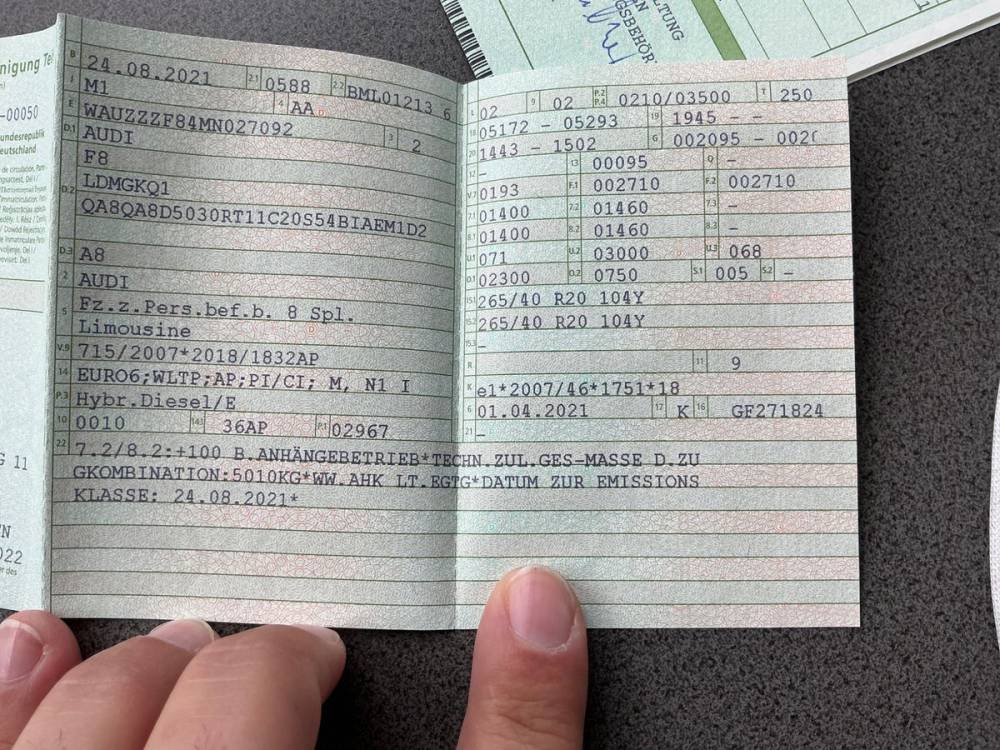 nigung Te
-00050
undesrepublik
Deutschland
G 11
N
022
LTUNG
GSBEHÖR
B 24.08.2021 2.1 0588 2.2 BML01213 6
J M1 4 AA
E WAUZZZF84MN027092 3 2
D.1 AUDI
F8
D.2 LDMGKQ1
QA8QA8D5030RT11C20S54BIAEM1D2
D.3 A8
2 AUDI
5 Fz.z.Pers.bef.b. 8 Spl.
Limousine
V.9 715/2007*2018/1832AP
14 EURO6;WLTP;AP;PI/CI; M, N1 I
P.3 Hybr.Diesel/E
10 0010 14.1 36AP P.1 02967
L 02 9 02 P.2 P.4 0210/03500 T 250
18 05172 - 05293 19 1945 - -
20 1443 - 1502 G 002095 - 002
12 - 13 00095 Q -
V.7 0193 F.1 002710 F.2 002710
7.1 01400 7.2 01460 7.3 -
8.1 01400 8.2 01460 8.3 -
U.1 071 U.2 03000 U.3 068
O.1 02300 O.2 0750 S.1 005 S.2 -
15.1 265/40 R20 104Y
15.2 265/40 R20 104Y
15.3 -
R 11 9
K e1*2007/46*1751*18
6 01.04.2021 17 K 16 GF271824
21 -
22 7.2/8.2:+100 B.ANHÄNGEBETRIEB*TECHN.ZUL.GES-MASSE D.ZU
GKOMBINATION:5010KG*WW.AHK LT.EGTG*DATUM ZUR EMISSIONS
KLASSE: 24.08.2021*